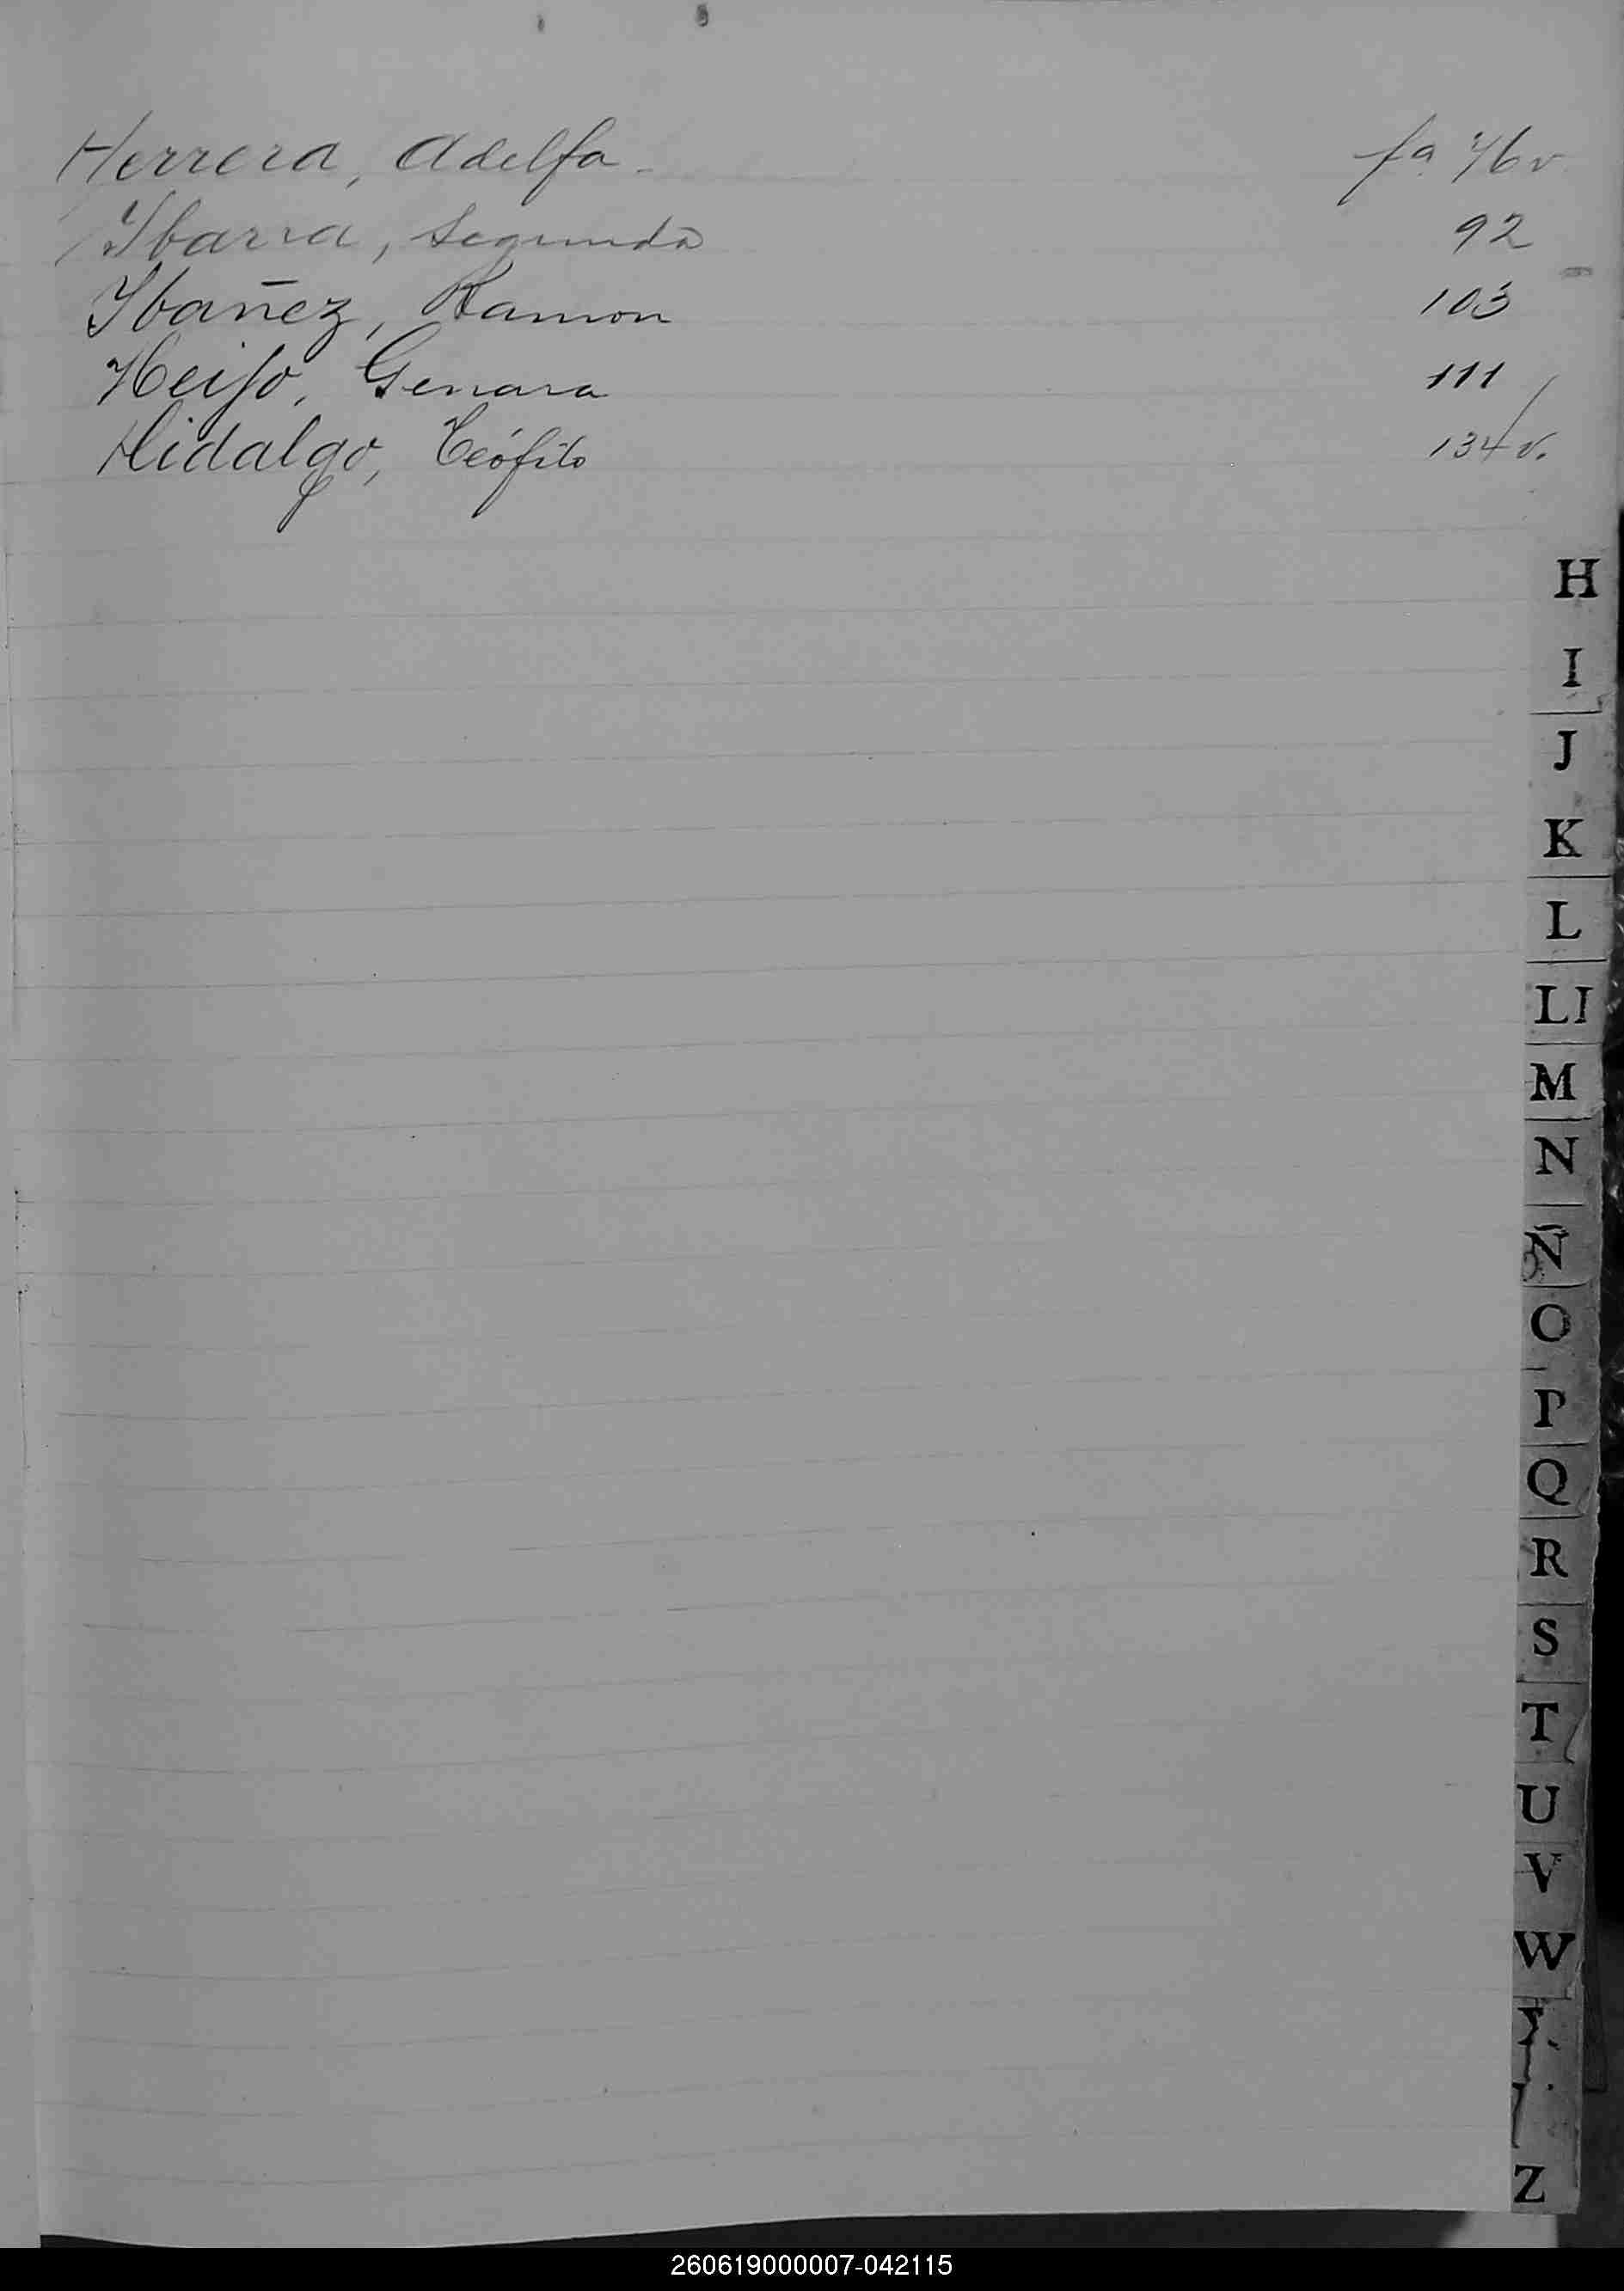 Herrera, Adelfa fa 76v
Ibarra, Segunda 92
Ibañez, Ramon 103
Genara 111
Hidalgo, Teófilo 134 v.
H
I
J
K
L
Ll
M
N
Ñ
O
P
Q
R
S
T
U
V
W
Z
260619000007-042115